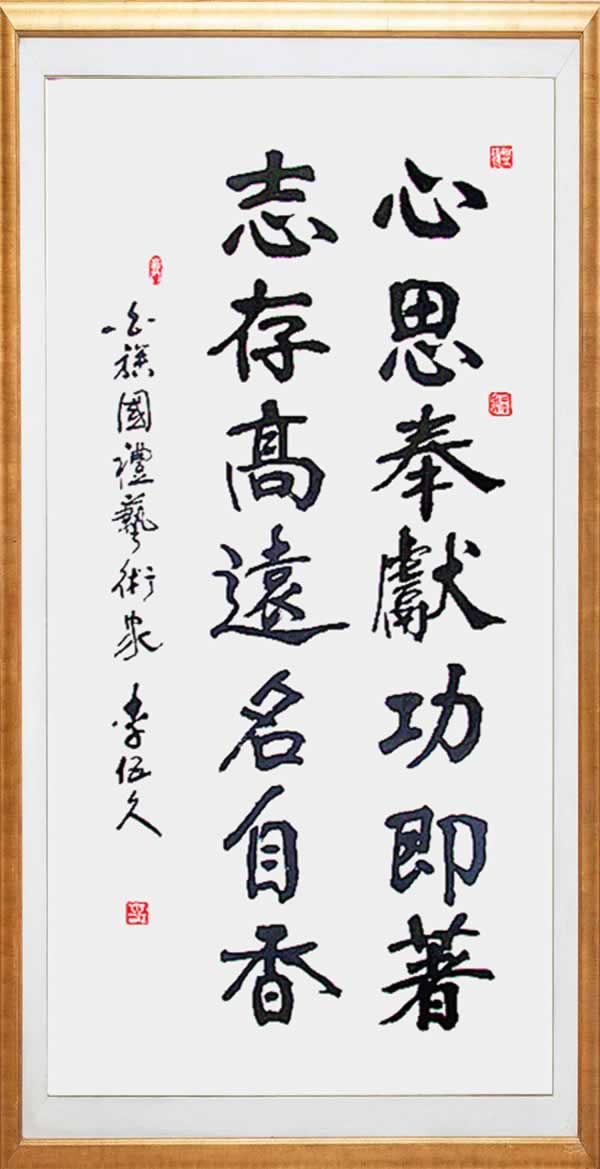 心思奉獻功即著
志存高遠名自香
白族國禮藝術家 李伍久